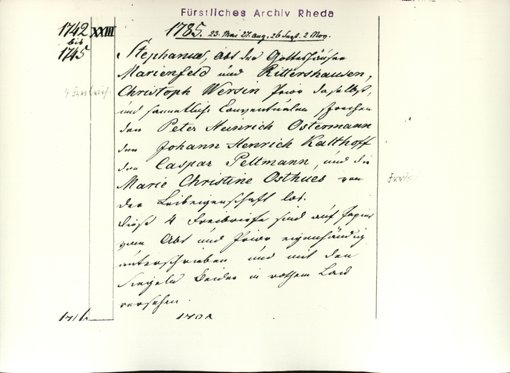 Fürstliches Archiv Rheda
1742
bis
1745
XXIII
1785. 23. Mai 27. Aug. 26. Sept. 2 Nov.
Stephanus, Abt der Gotteshäuser
Marienfeld und Rittershausen,
Christoph Wersin Prior daselbst,
und sämmtliche Conventualen sprechen
den Peter Heinrich Ostermann
den Johann Henrich Kalthoff
den Caspar Peltmann, und die
Marie Christine Osthues von
der Leibeigenschaft los.
Diese 4 Freibriefe sind auf Papier
vom Abt und Prior eigenhändig
unterschrieben und mit den
Siegeln Beider in rothem Lack
versehen.